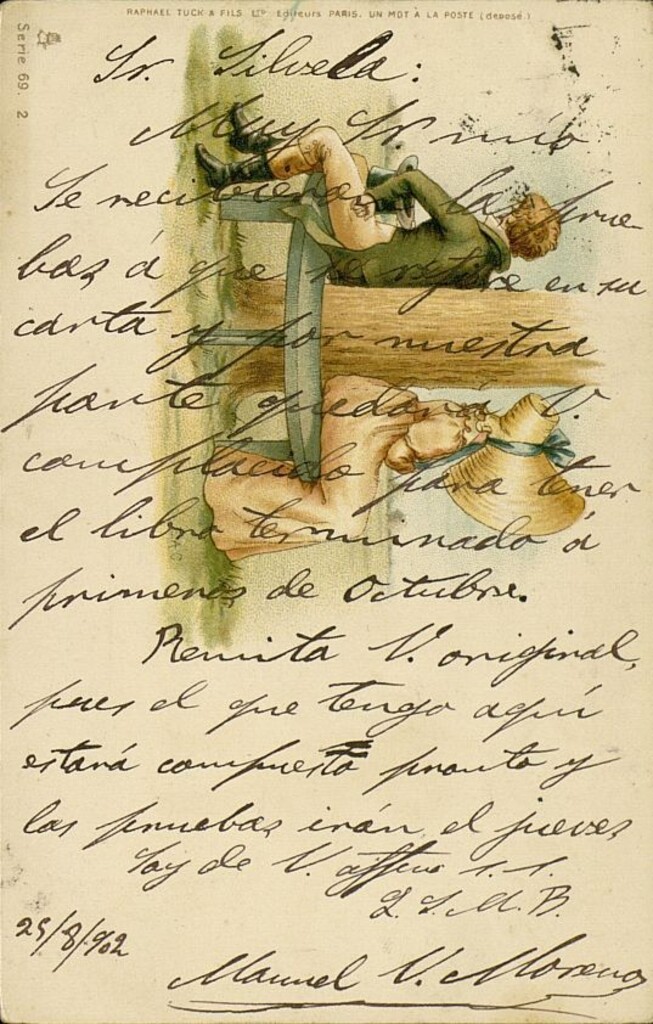 RAPHAEL TUCK & FILS LTD Editeurs PARIS. UN MOT À LA POSTE (déposé)
Serie 69. 2
Sr. Silvela:
Muy Sr mío
Se recibieron las prue-
bas á que se refiere en su
carta y por nuestra
parte quedará V.
complacido para tener
el libro terminado á
primeros de Octubre.
Remita V. original,
pues el que tengo aquí
estará compuesto pronto y
las pruebas irán el jueves
Soy de V. affmo s. s.
Q. S. M. B.
25/8/902
Manuel V. Moreno